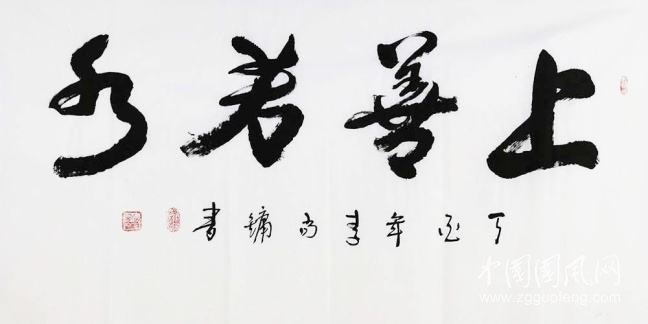 上善若水
丁酉年李尚镛书
中国国风网
www.zgguofeng.com